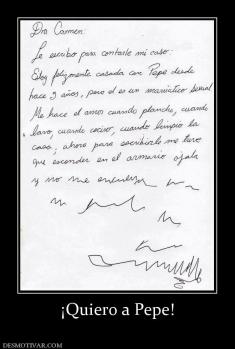 Dra Carmen:
Le escribo para contarle mi caso:
Estoy felizmente casada con Pepe desde
hace 3 años, pero él es un maniático sexual
Me hace el amor cuando plancho, cuando
lavo, cuando cocino, cuando limpio la
casa; ahora para escribirle me tuve
que esconder en el armario ojala
y no me encuentr
¡Quiero a Pepe!
DESMOTIVAR.COM